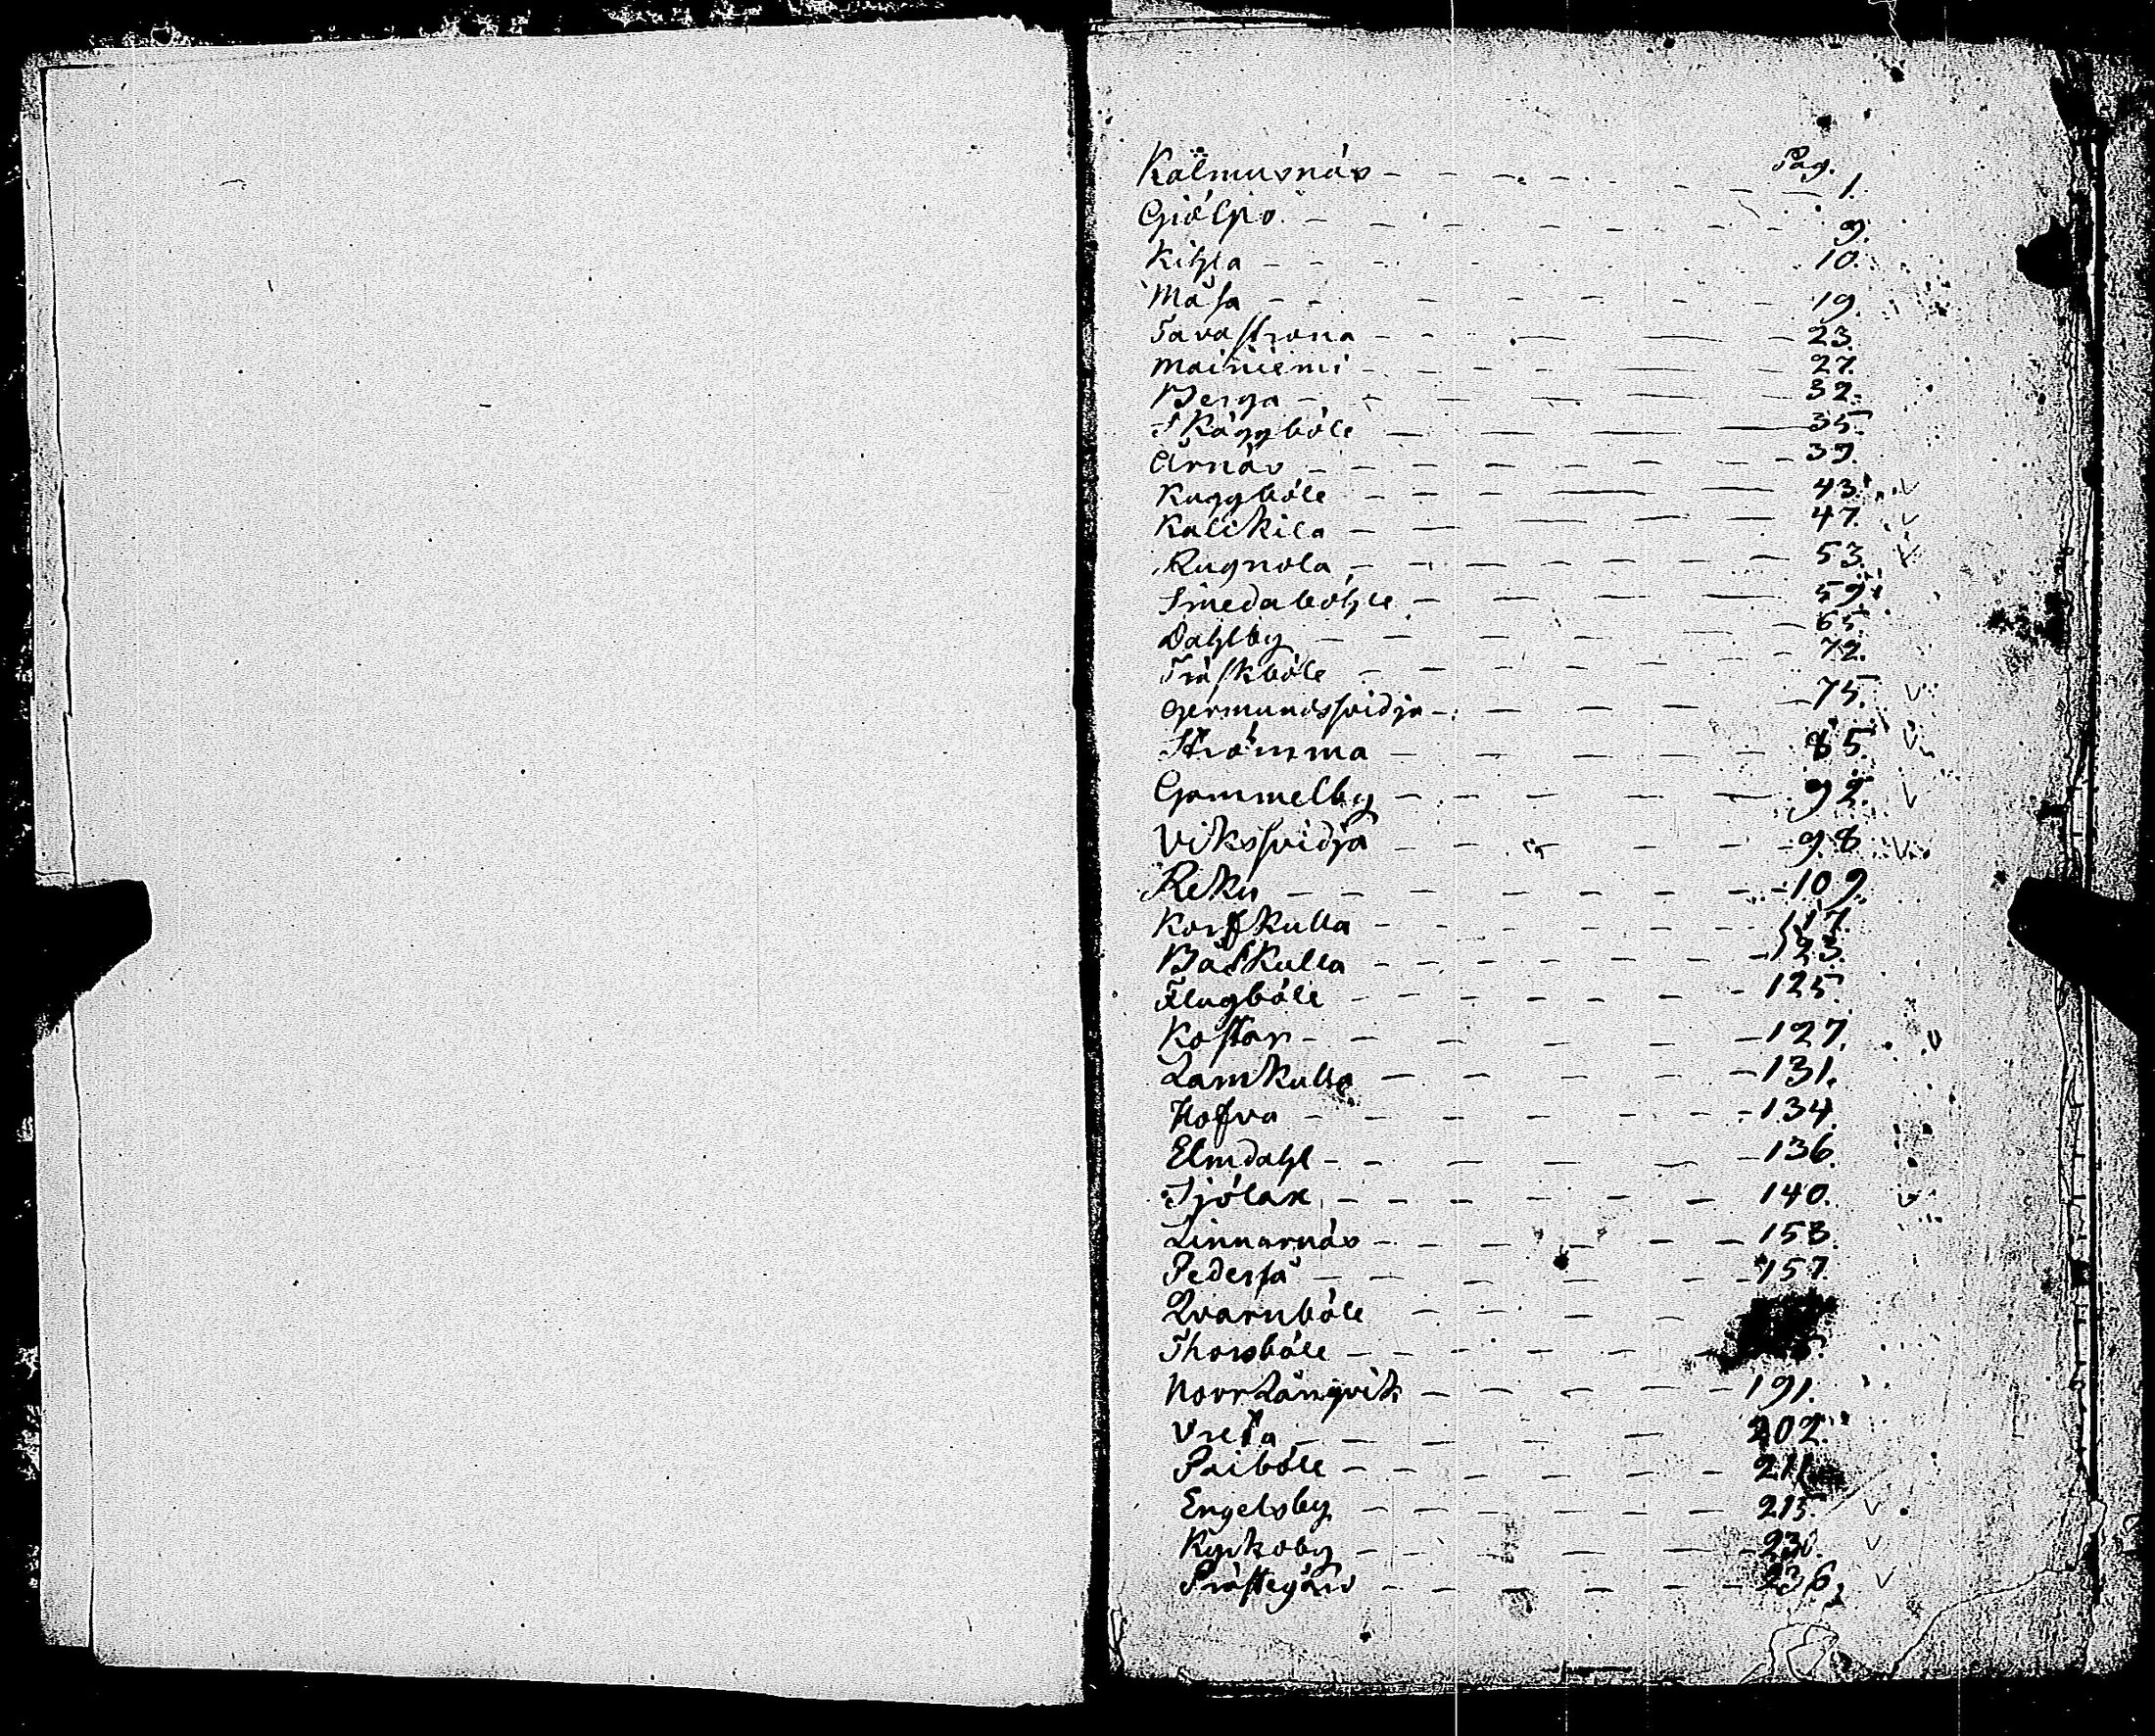 Pag.
Kalmusnäs - - - - - - - 1.
Giölpo - - - - - - - 9.
Kihla - - - - - - - 10.
Måsa - - - - - - - 19.
Tavastrona - - - - - 23.
Mainiemi - - - - - - 27.
Berga - - - - - - - 32.
Skäggböle - - - - - 35.
Årnäs - - - - - - - 39.
Kuggböle - - - - - 43. v
Kalikila - - - - - 47. v
Rugnola - - - - - - 53. v
Smedaböhle - - - - - 59.
Dahlby - - - - - - 65.
Träskböle - - - - - 72.
Germundssvidja - - - - - 75. v
Strömma - - - - - - 85. v
Gammelby - - - - - - 92. v
Vikssvidja - - - - - 98. v
Reku - - - - - - - 109.
Korskulla - - - - - - 117.
Båskulla - - - - - - 123.
Flugböle - - - - - - 125.
Kostar - - - - - - 127. v
Lamkulla - - - - - 131.
Hofva - - - - - - 134.
Elmdahl - - - - - - 136.
Sjölax - - - - - - 140. v
Linnarnäs - - - - - - 153.
Pederså - - - - - - 157.
Qvarnböle - - - -
Thorsböle - - - - - -
Norrlångvik - - - - - 191.
Vreta - - - - - 202.
Paiböle - - - - - - 211.
Engelsby - - - - - - 215. v
Kyrkoby - - - - - - 230. v
Prästegård - - - - - - 236. v